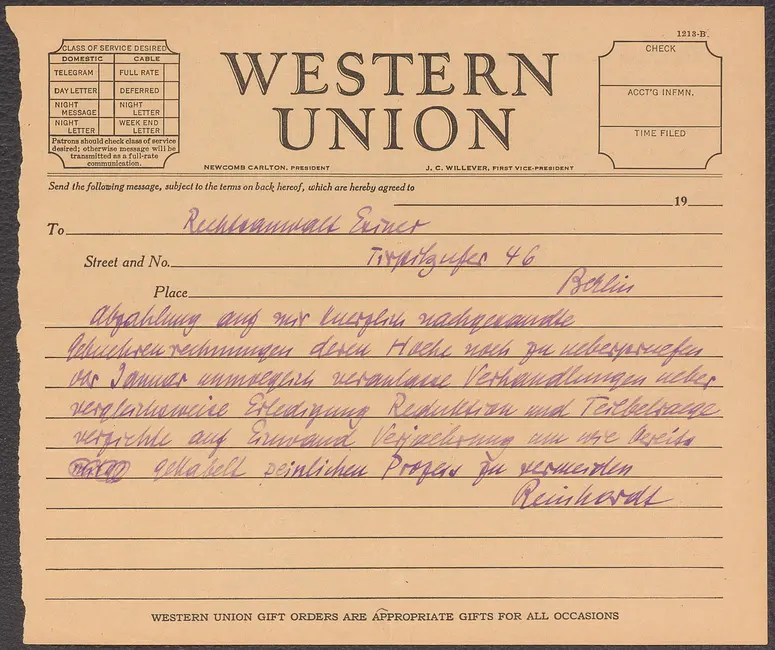 1213-B
CLASS OF SERVICE DESIRED
DOMESTIC CABLE
TELEGRAM FULL RATE
DAY LETTER DEFERRED
NIGHT MESSAGE NIGHT LETTER
NIGHT LETTER WEEK END LETTER
Patrons should check class of service
desired; otherwise message will be
transmitted as a full-rate
communication.
WESTERN
UNION
NEWCOMB CARLTON, PRESIDENT J. C. WILLEVER, FIRST VICE-PRESIDENT
CHECK
ACCT'G INFMN.
TIME FILED
Send the following message, subject to the terms on back hereof, which are hereby agreed to
19
To Rechtsanwalt Exner
Street and No. Tirpitzufer 46
Place Berlin
Abzahlung auf mir kuerzlich nachgesandte
Gebuehrenrechnungen deren Hoehe noch zu ueberpruefen
vor Januar unmoeglich veranlasse Verhandlungen ueber
vergleichsweise Erledigung Reduktion und Teilbetraege
verzichte auf Einwand Verjaehrung um wie bereits
gekabelt peinlichen Prozess zu vermeiden
Reinhardt
WESTERN UNION GIFT ORDERS ARE APPROPRIATE GIFTS FOR ALL OCCASIONS